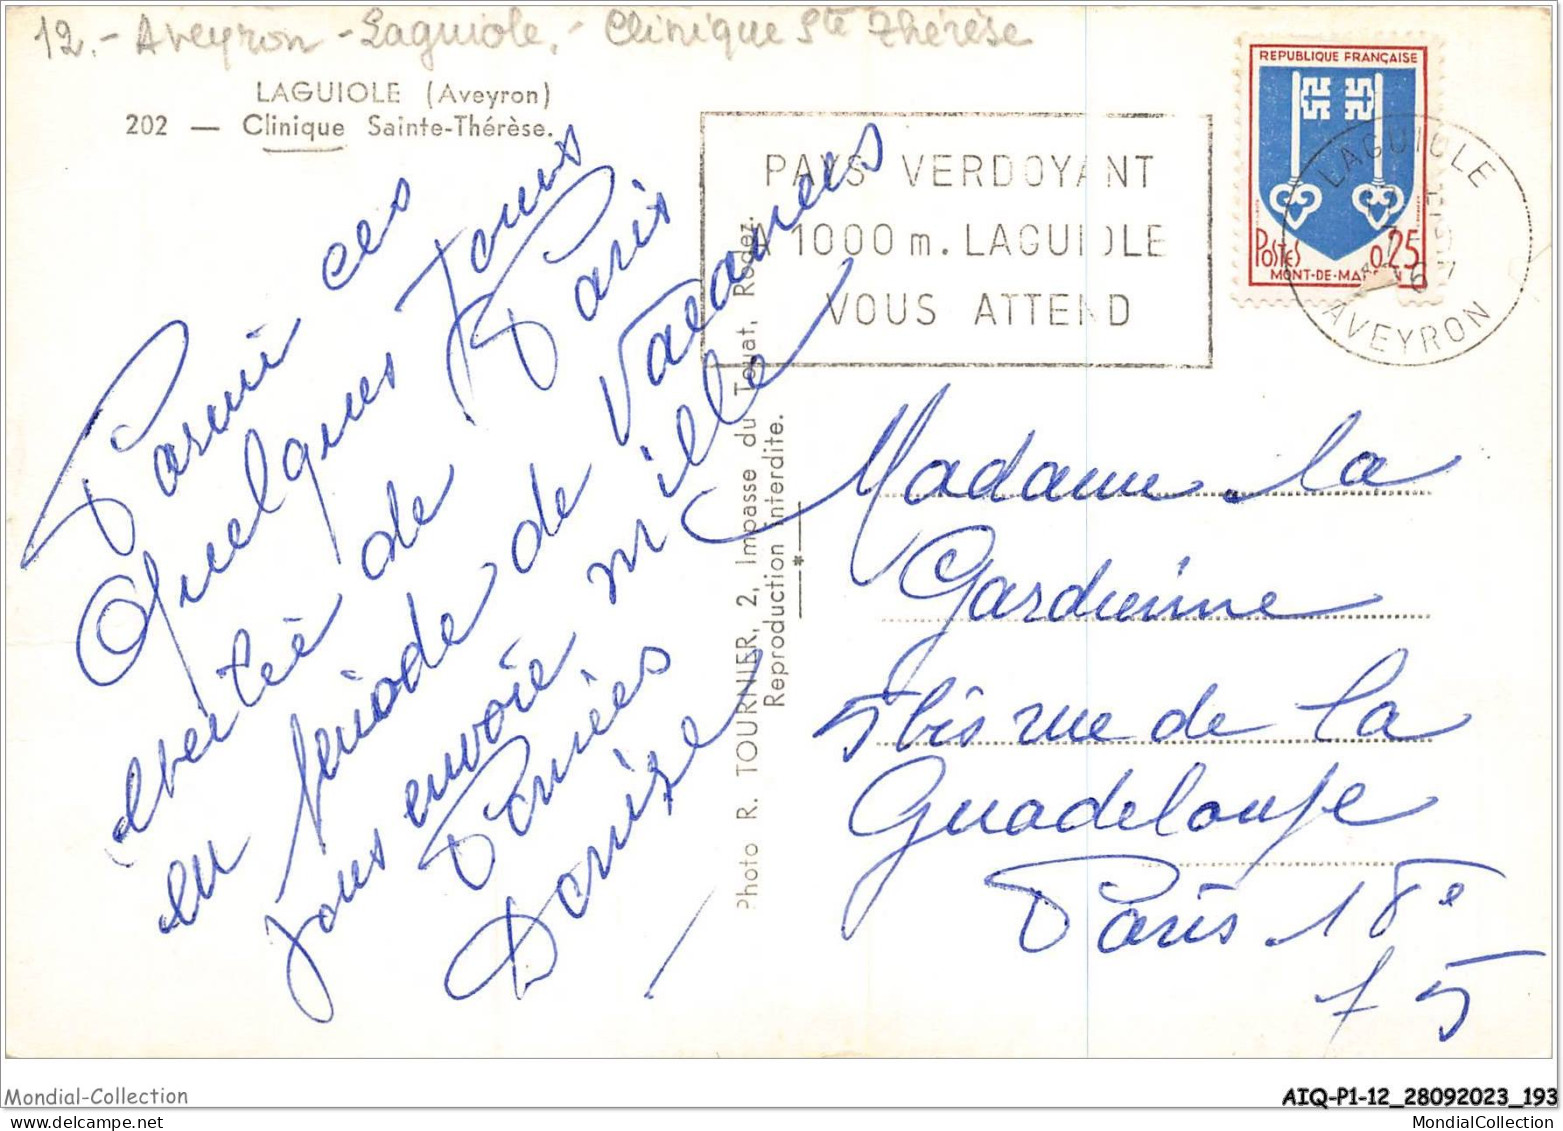 12.- Aveyron - Laguiole. - Clinique Ste Thérèse
LAGUIOLE (Aveyron)
202 — Clinique Sainte-Thérèse.
Parmi ces
quelques jours
de Paris
en periode de Vacances
vous envoie mille
Pensées
Denise
Photo R. TOURNIER, 2, Impasse du Touat, Rodez.
Reproduction interdite.
PAYS VERDOYANT
A 1000 m. LAGUIOLE
VOUS ATTEND
REPUBLIQUE FRANÇAISE
POSTES 0,25
MONT-DE-MA
LAGUIOLE
AVEYRON
Madame la
Gardienne
5 bis rue de la
Guadeloupe
Paris 18e
f 5
Mondial-Collection
AIQ-P1-12_28092023_193
MondialCollection